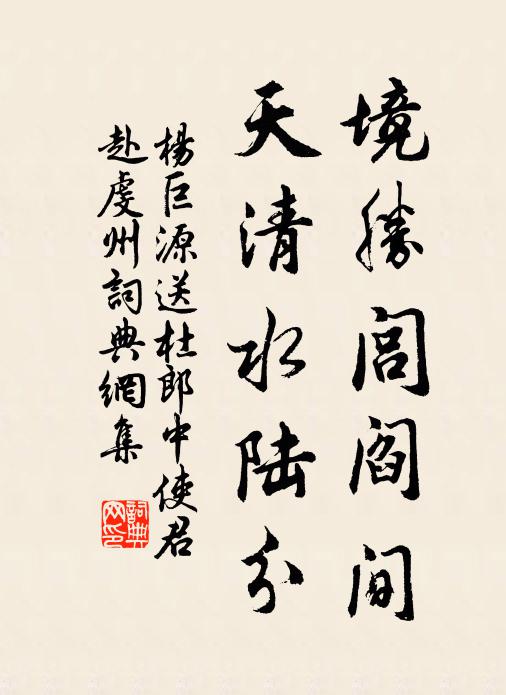 境勝闾阎间
天清水陆分
楊巨源送杜郎中使君
赴虔州詞典網集
詞典网印